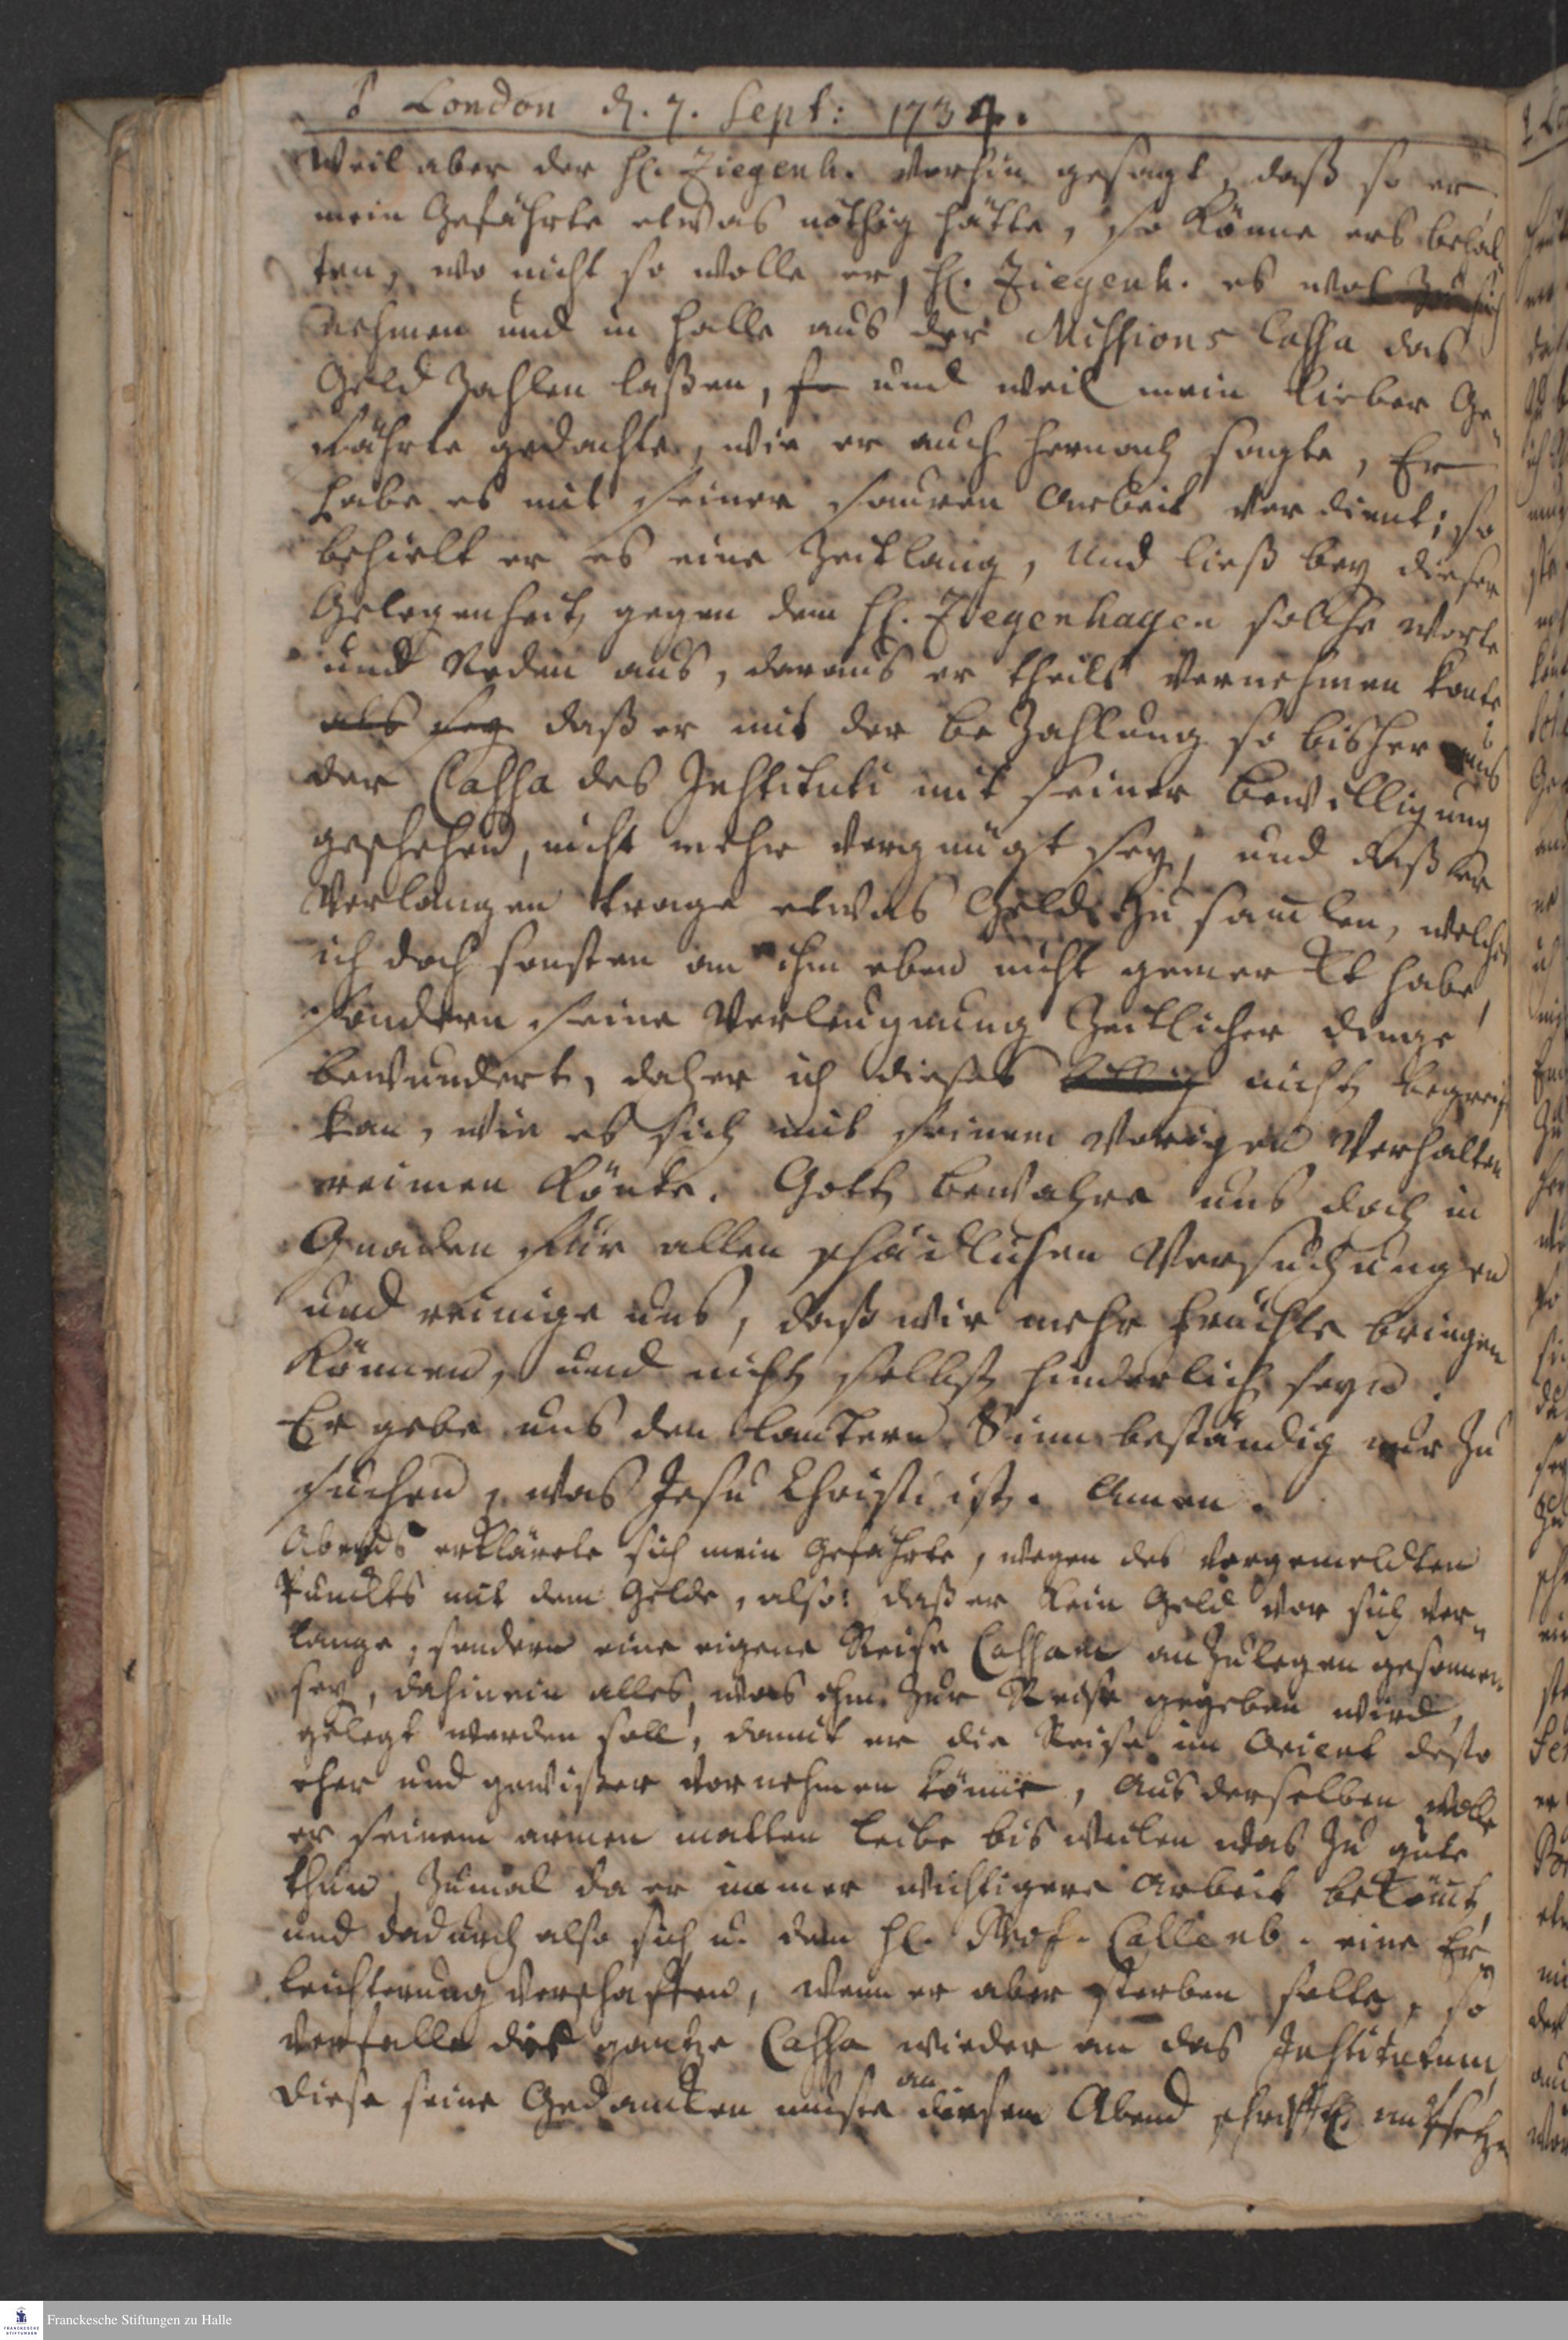 ♂ London d. 7. Sept: 1734.
Weil aber der H. Ziegenh. vorhin gesagt, daß so er
mein Gefährte etwas nöthig hätte, so könne ers behal-
ten, wo nicht so wolle er, H. Ziegenh. es wol zu sich
nehmen und in Halle aus der Missions Cassa das
Geld zahlen laßen, so und weil mein lieber Ge-
fährte gedachte, wie er auch hernach sagte, Er
habe es mit seiner sauren Arbeit verdient; so
behielt er es eine Zeitlang, und ließ bey dieser
Gelegenheit gegen dem H. Ziegenhagen solche Worte
und Reden aus, daraus er theils vernehmen konte
als sey daß er mit der bezahlung so bisher aus
der Cassa des Instituti mit seiner Bewilligung
geschehen, nicht mehr vergnügt sey, und daß er
Verlangen trage etwas Geld zu samlen, welches
ich doch sonsten an ihm eben nicht gemerckt habe,
sondern seine Verleugnung Zeitlicher dinge
bewundert, daher ich dieses nicht begreif
kan, wie es sich mit seinem vorigen Verhalten
reimen könte. Gott bewahre uns doch in
Gnaden für allen schädlichen Versuchungen
und reinige uns, daß wir mehr Früchte bringen
können, und nicht selbst hinderlich seyn.
Er gebe uns den lautern Sinn beständig nur zu
suchen, was Jesu Christi ist. Amen.
Abends erklärete sich mein Gefährte, wegen des vorgemeldten
Punckts mit dem Gelde, also: daß er kein Geld vor sich ver-
lange, sondern eine eigene Reise Cassam anzulegen gesonnen
sey, dahinein alles, was ihm zur Reise gegeben wird,
gelegt werden soll, damit er die Reise im Orient desto
eher und gewißer vornehmen könne, Aus derselben wolle
er seinem armen matten Leibe bisweilen was zu gute
thun, zumal da er immer wichtigere Arbeit bekömt,
und dadurch also sich u. dem H. Prof. Callenb. eine Er-
leichterung verschaffen, wenn er aber sterben solte, so
verfalle die gantze Cassa wieder an das Institutum,
diese seine Gedancken muste an diesem Abend schriftl. aufsetzen